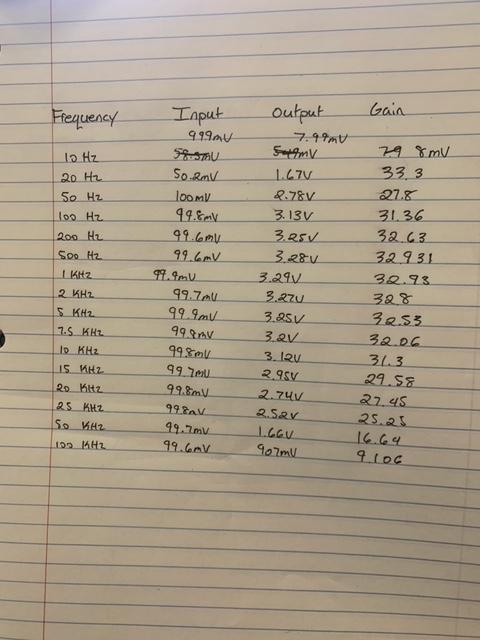 Frequency Input Output Gain
999mV 7.99mV
10 Hz 58.5mV 549mV 79 8mV
20 Hz 50.2mV 1.67V 33.3
50 Hz 100mV 2.78V 27.8
100 Hz 99.8mV 3.13V 31.36
200 Hz 99.6mV 3.25V 32.63
500 Hz 99.6mV 3.28V 32.931
1 KHz 99.9mV 3.29V 32.93
2 KHz 99.7mV 3.27V 32.8
5 KHz 99.9mV 3.25V 32.53
7.5 KHz 99.8mV 3.2V 32.06
10 KHz 99.8mV 3.12V 31.3
15 KHz 99.7mV 2.95V 29.58
20 KHz 99.8mV 2.74V 27.45
25 KHz 99.8mV 2.52V 25.25
50 KHz 99.7mV 1.66V 16.64
100 KHz 99.6mV 907mV 9.106